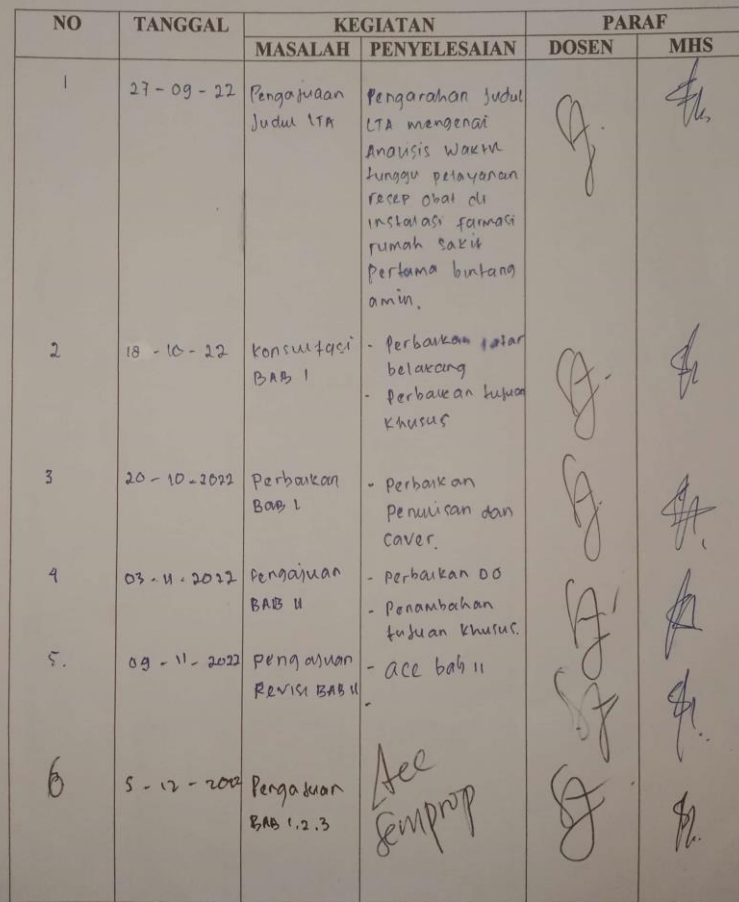 NO TANGGAL KEGIATAN PARAF
MASALAH PENYELESAIAN DOSEN MHS
1 27-09-22 Pengajuaan Pengarahan Judul
Judul LTA LTA mengenai
Analisis Waktu
tunggu pelayanan
resep obat di
instalasi farmasi
rumah sakit
Pertama bintang
amin.
2 18-10-22 Konsultasi - Perbaikan latar
BAB 1 belakang
- Perbaikan tujuan
Khusus
3 20-10-2022 Perbaikan - Perbaikan
BAB 1 Penulisan dan
Caver.
4 03-11-2022 Pengajuan - Perbaikan DO
BAB II - Penambahan
tujuan Khusus.
5. 09-11-2022 Pengajuan - acc bab II
Revisi BAB II -
6 5-12-2022 Pengajuan Acc
BAB 1,2,3 Semprop